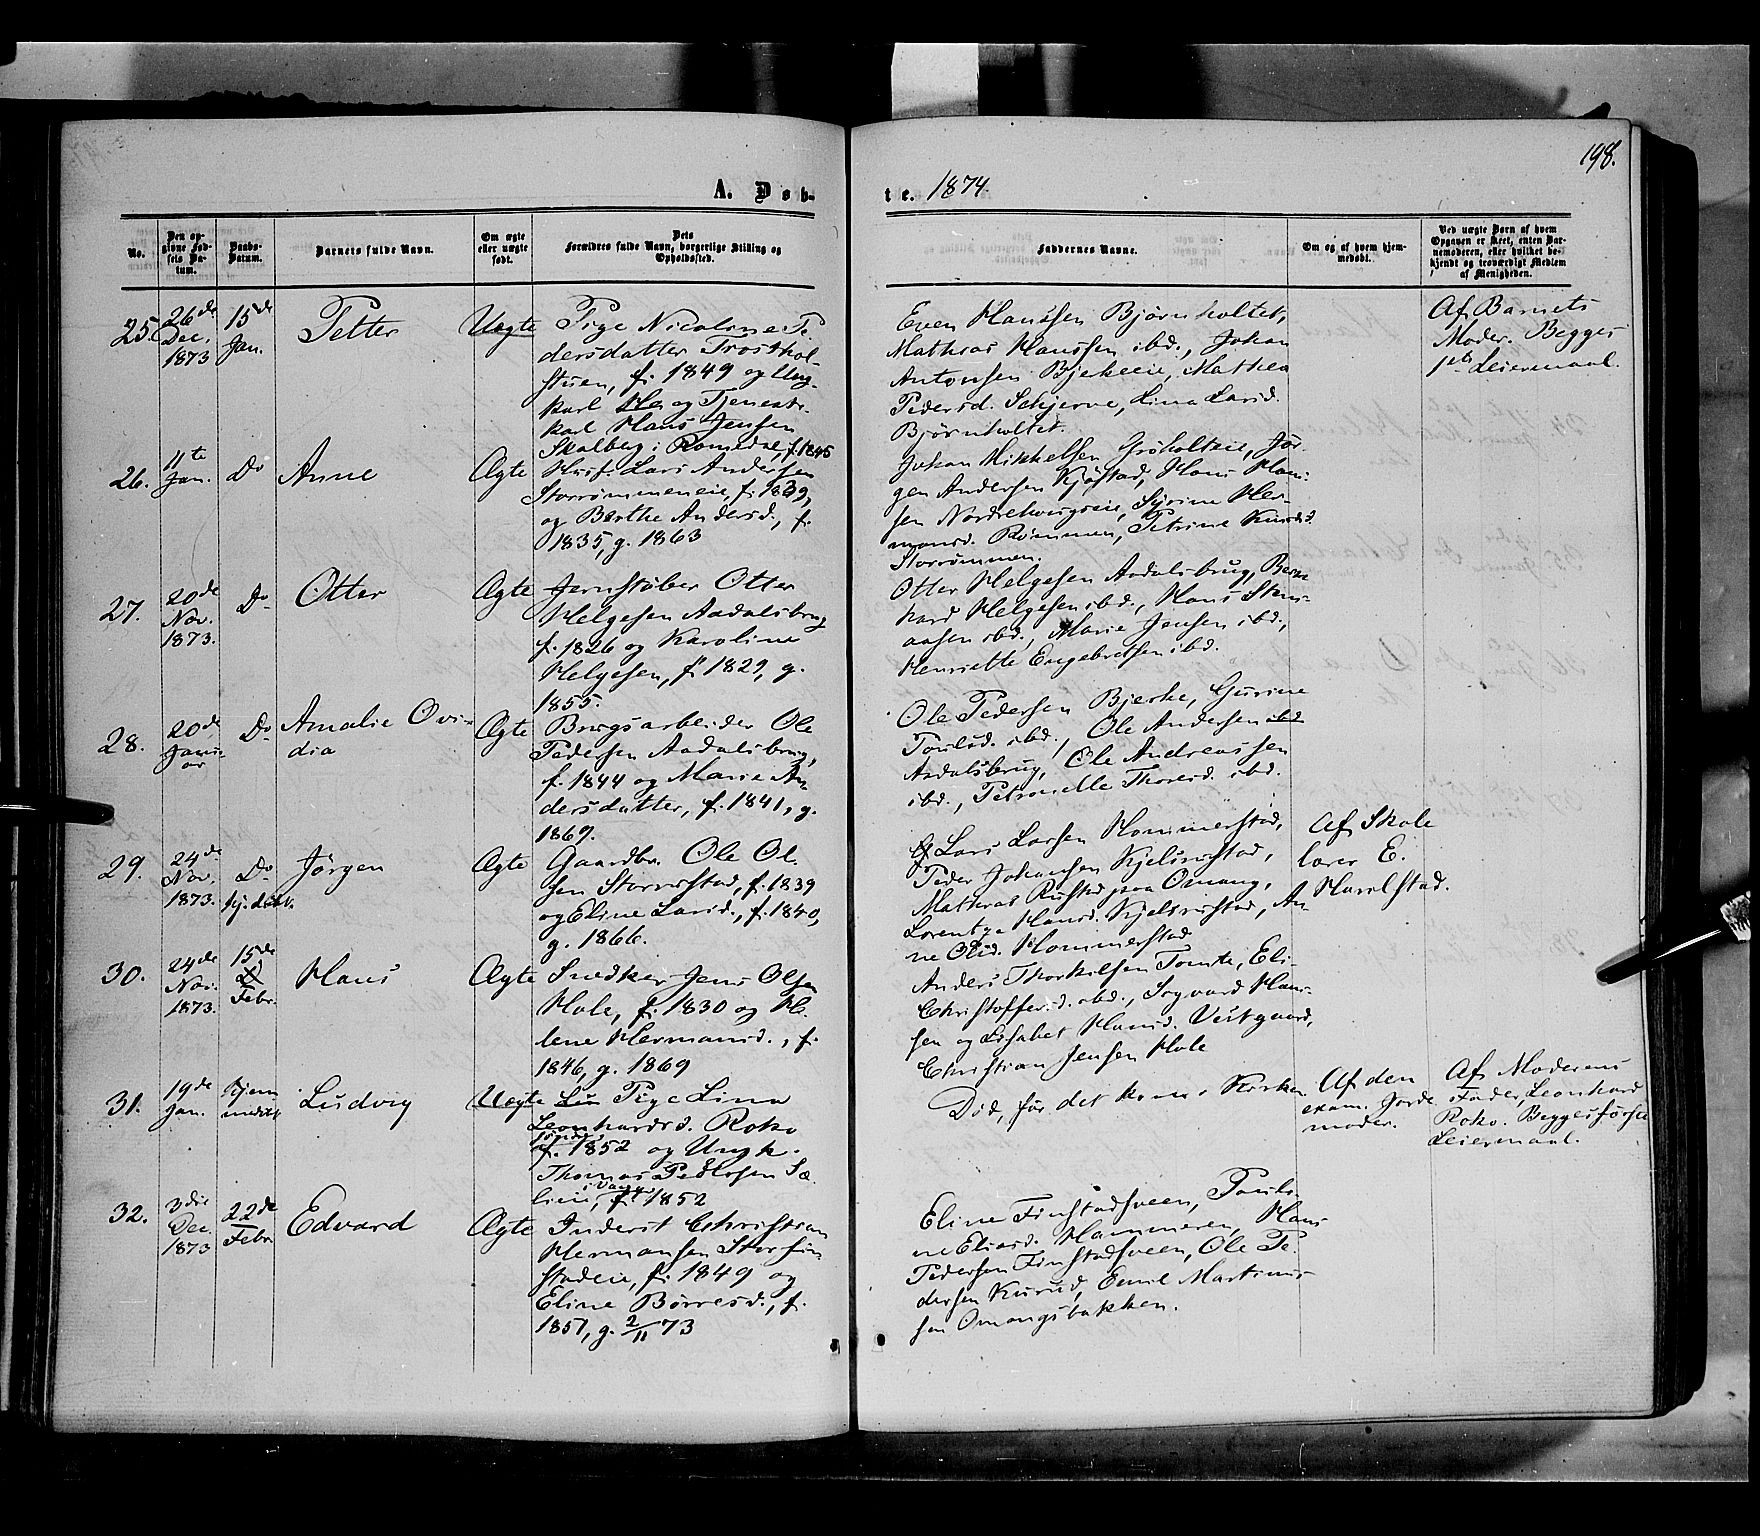 198.
A. Døb-
te. 1874.
No.
Den op-
givne Fød-
sels Da-
tum.
Daabs-
Datum.
Barnets fulde Navn.
Om ægte
eller uægte
født.
Dets
Forældres fulde Navn, borgerlige Stilling og
Opholdssted.
Faddernes Navne.
Om og af hvem hjem-
medøbt.
Ved uægte Børn af hvem
Opgaven er skeet, enten Bar-
nemoderen, eller hvilket be-
kjendt og troværdigt Medlem
af Menigheden.
25.
26de
Dec.
1873
15de
Jan.
Petter
Uægte
Pige Nicoline Pe
dersdatter Trosthol
stuen, f. 1849 og Ung-
karl He og Tjeneste-
karl Hans Jensen
Skalberg i Romedal, f. 1845
Even Hanssen Bjørnholtet,
Mathias Hanssen ibd., Johan
Antonsen Bjerkeeie, Mathea
Pedersd. Schjerve, Lina Larsd.
Bjørnholtet.
Af Barnets
Moder. Begges
1ste Leiermaal.
26.
11te
Jan.
Do
Anne
Ægte
Husf. Lars Andersen
Storrømmeneie, f. 1839,
og Berthe Andersd., f.
1835, g. 1863
Johan Mikkelsen Grøholteie, Jør
gen Andersen Kjøstad, Hans Han-
sen Nordrekvernseie, Syrine Her-
mansd. Rømmen, Petrine Knudsd.
Storrømmen.
27.
20de
Nov.
1873.
Do
Otter
Ægte
Jernstøber Otter
Helgesen Aadalsbrug
f. 1826 og Karoline
Helgesen, f. 1829, g.
1855.
Otter Helgesen Aadalsbrug, Bern
hard Helgesen ibd., Hans Sten-
aasen ibd., Marie Jensen ibd.,
Henriette Engebretsen ibd.
28.
20de
Janu-
ar
Do
Amalie Ovi-
dia
Ægte
Brugsarbeider Ole
Pedersen Aadalsbrug,
f. 1844 og Marie An
dersdatter, f. 1841, g.
1869.
Ole Pedersen Bjerke, Gurine
Poulsd. ibd., Ole Andersen ibd
Aadalsbrug, Ole Andreassen
ibd., Petronelle Thoresd. ibd.
29.
24de
Nov.
1873.
Do
Jørgen
Ægte
Gaardbr. Ole Ol-
sen Storrustad, f. 1839
og Eline Larsd., f. 1840,
g. 1866.
Lars Larsen Hommerstad,
Peder Johansen Kjelsrustad,
Mathias Rustad paa Omang,
Lorentze Hansd. Kjelsrustad, An
ne Olsd. Hommerstad
Af Skole
lærer E.
Harelstad.
30.
24de
Nov.
1873.
15de
Febr.
Hans
Ægte
Snedker Jens Olsen
Hole, f. 1830 og He
lene Hermansd., f.
1846, g. 1869
Anders Thorkilsen Tomte, Eli-
Christoffersd. ibd., Sigvard Han-
sen og Lisabet Hansd. Vestgaard,
Christian Jensen Hole
31.
19de
Jan.
Hjem
medøbt
Ludvig
Uægte
Pige Lina
Leonhardsd. Roko
f. 1852 og Ungk.
Thomas Pedersen Sæ
lieie, i Vang, f. 1852
Død, før det kom i Kirken
Af den
exam. Jorde
moder.
Af Moderens
Fader, Leonhard
Roko. Begges første
Leiermaal.
32.
3die
Dec.
1873
22de
Febr.
Edvard
Ægte
Inderst Christian
Hermansen Storfin-
stadeie, f. 1849 og
Eline Børresd., f.
1851, g. 2/11 73
Eline Finstadsveen, Pauli-
ne Eliasd. Hammeren, Hans
Pedersen Finstadsveen, Ole Pe-
dersen Kurud, Emil Martinus-
sen Omangsbakken.